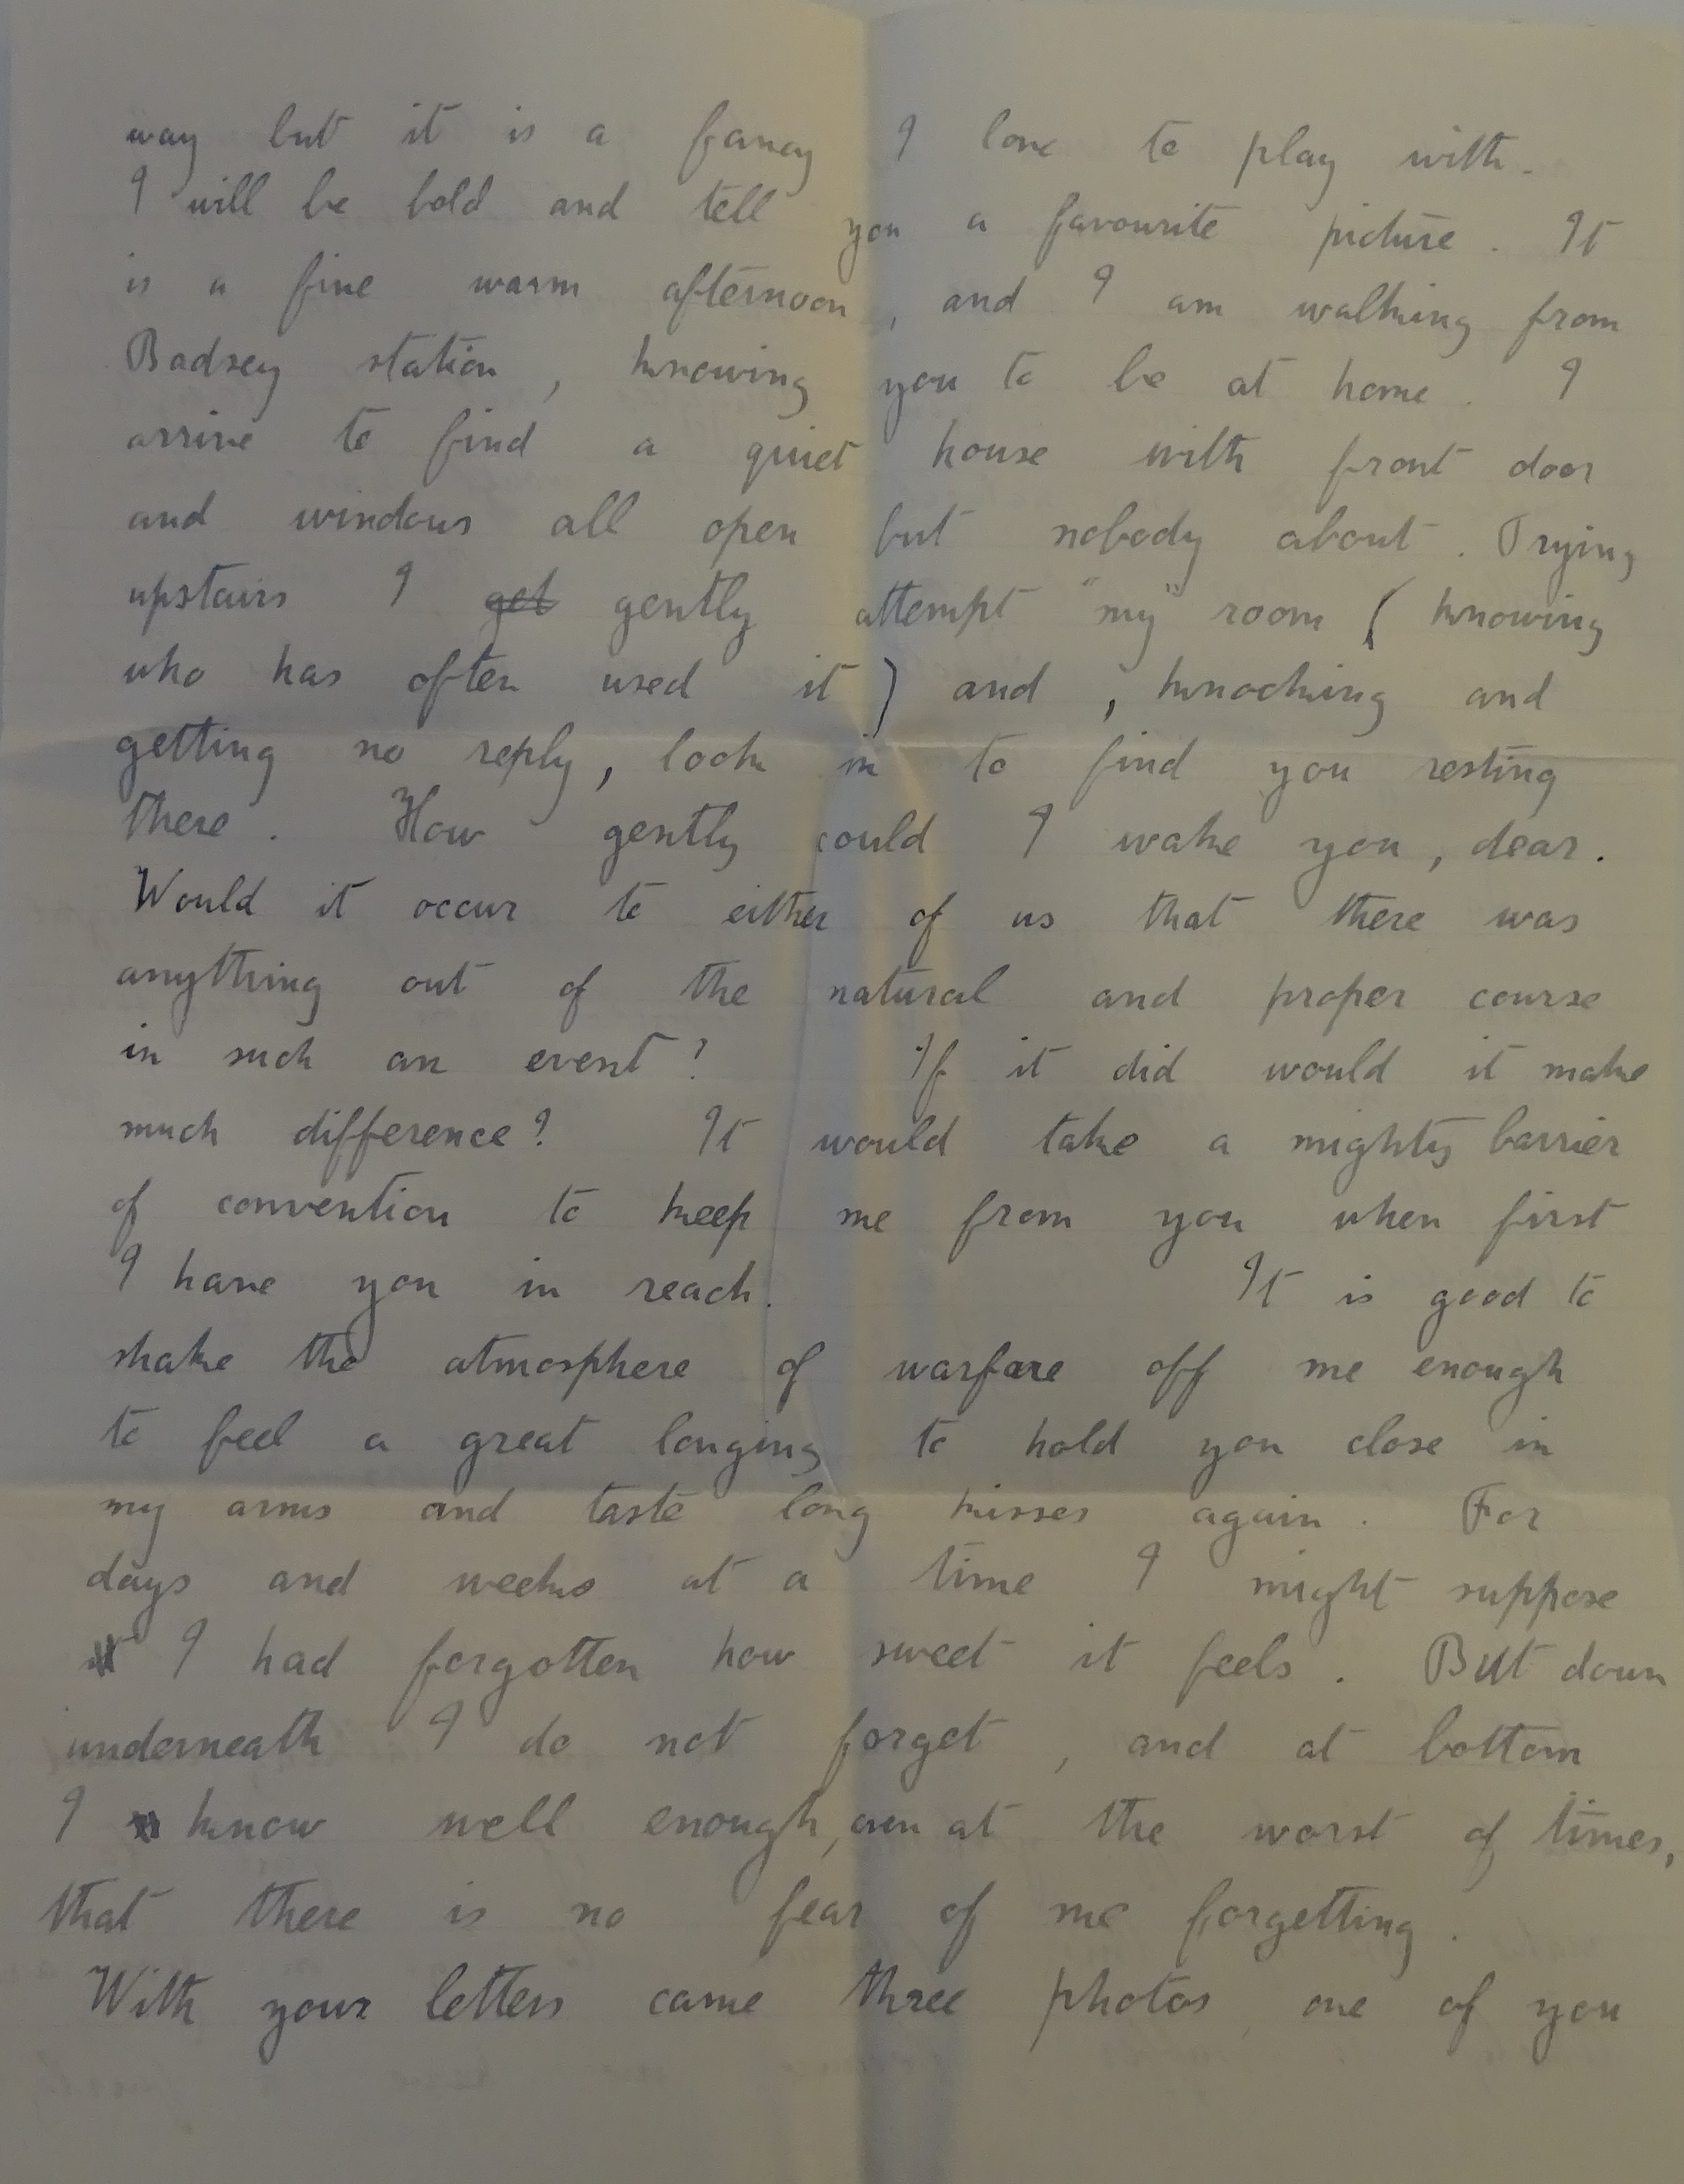 way but it is a fancy I love to play with.
I will be bold and tell you a favourite picture. It
is a fine warm afternoon, and I am walking from
Badsey station, knowing you to be at home. I
arrive to find a quiet house with front door
and windows all open but nobody about. Trying
upstairs I get gently attempt "my" room (knowing
who has often used it) and, knocking and
getting no reply, look in to find you resting
there. How gently could I wake you, dear.
Would it occur to either of us that there was
anything out of the natural and proper course
in such an event? If it did would it make
much difference? It would take a mighty barrier
of convention to keep me from you when first
I have you in reach. It is good to
shake the atmosphere of warfare off me enough
to feel a great longing to hold you close in
my arms and taste long kisses again. For
days and weeks at a time I might suppose
I had forgotten how sweet it feels. But down
underneath I do not forget, and at bottom
I know well enough, even at the worst of times,
that there is no fear of me forgetting.
With your letters came three photos, one of you